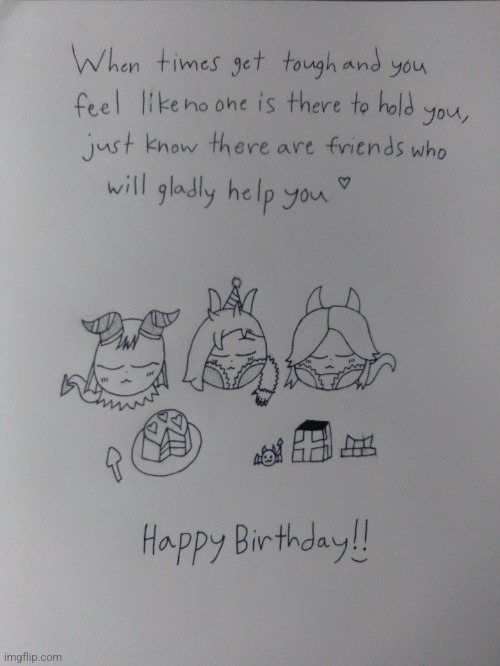 When times get tough and you
feel like no one is there to hold you,
just know there are friends who
will gladly help you ♡
Happy Birthday!!
imgflip.com